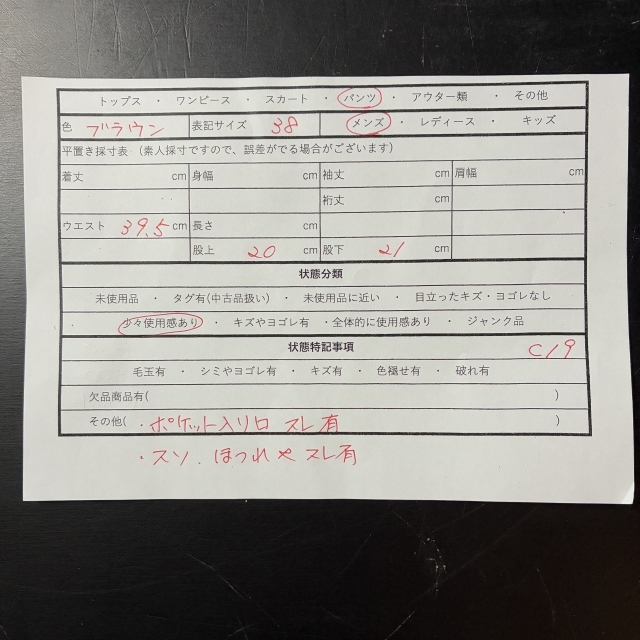 トップス ・ ワンピース ・ スカート ・ パンツ ・ アウター類 ・ その他
色 ブラウン 表記サイズ 38 メンズ ・ レディース ・ キッズ
平置き採寸表 (素人採寸ですので、誤差がでる場合がございます)
着丈 cm 身幅 cm 袖丈 cm 肩幅 cm
裄丈 cm
ウエスト 39.5 cm 長さ cm
股上 20 cm 股下 21 cm
状態分類
未使用品 ・ タグ有(中古品扱い) ・ 未使用品に近い ・ 目立ったキズ・ヨゴレなし
少々使用感あり ・ キズやヨゴレ有 ・全体的に使用感あり ・ ジャンク品
状態特記事項 C19
毛玉有 ・ シミやヨゴレ有 ・ キズ有 ・ 色褪せ有 ・ 破れ有
欠品商品有( )
その他( ・ポケット入り口 スレ有 )
・スソ、ほつれやスレ有